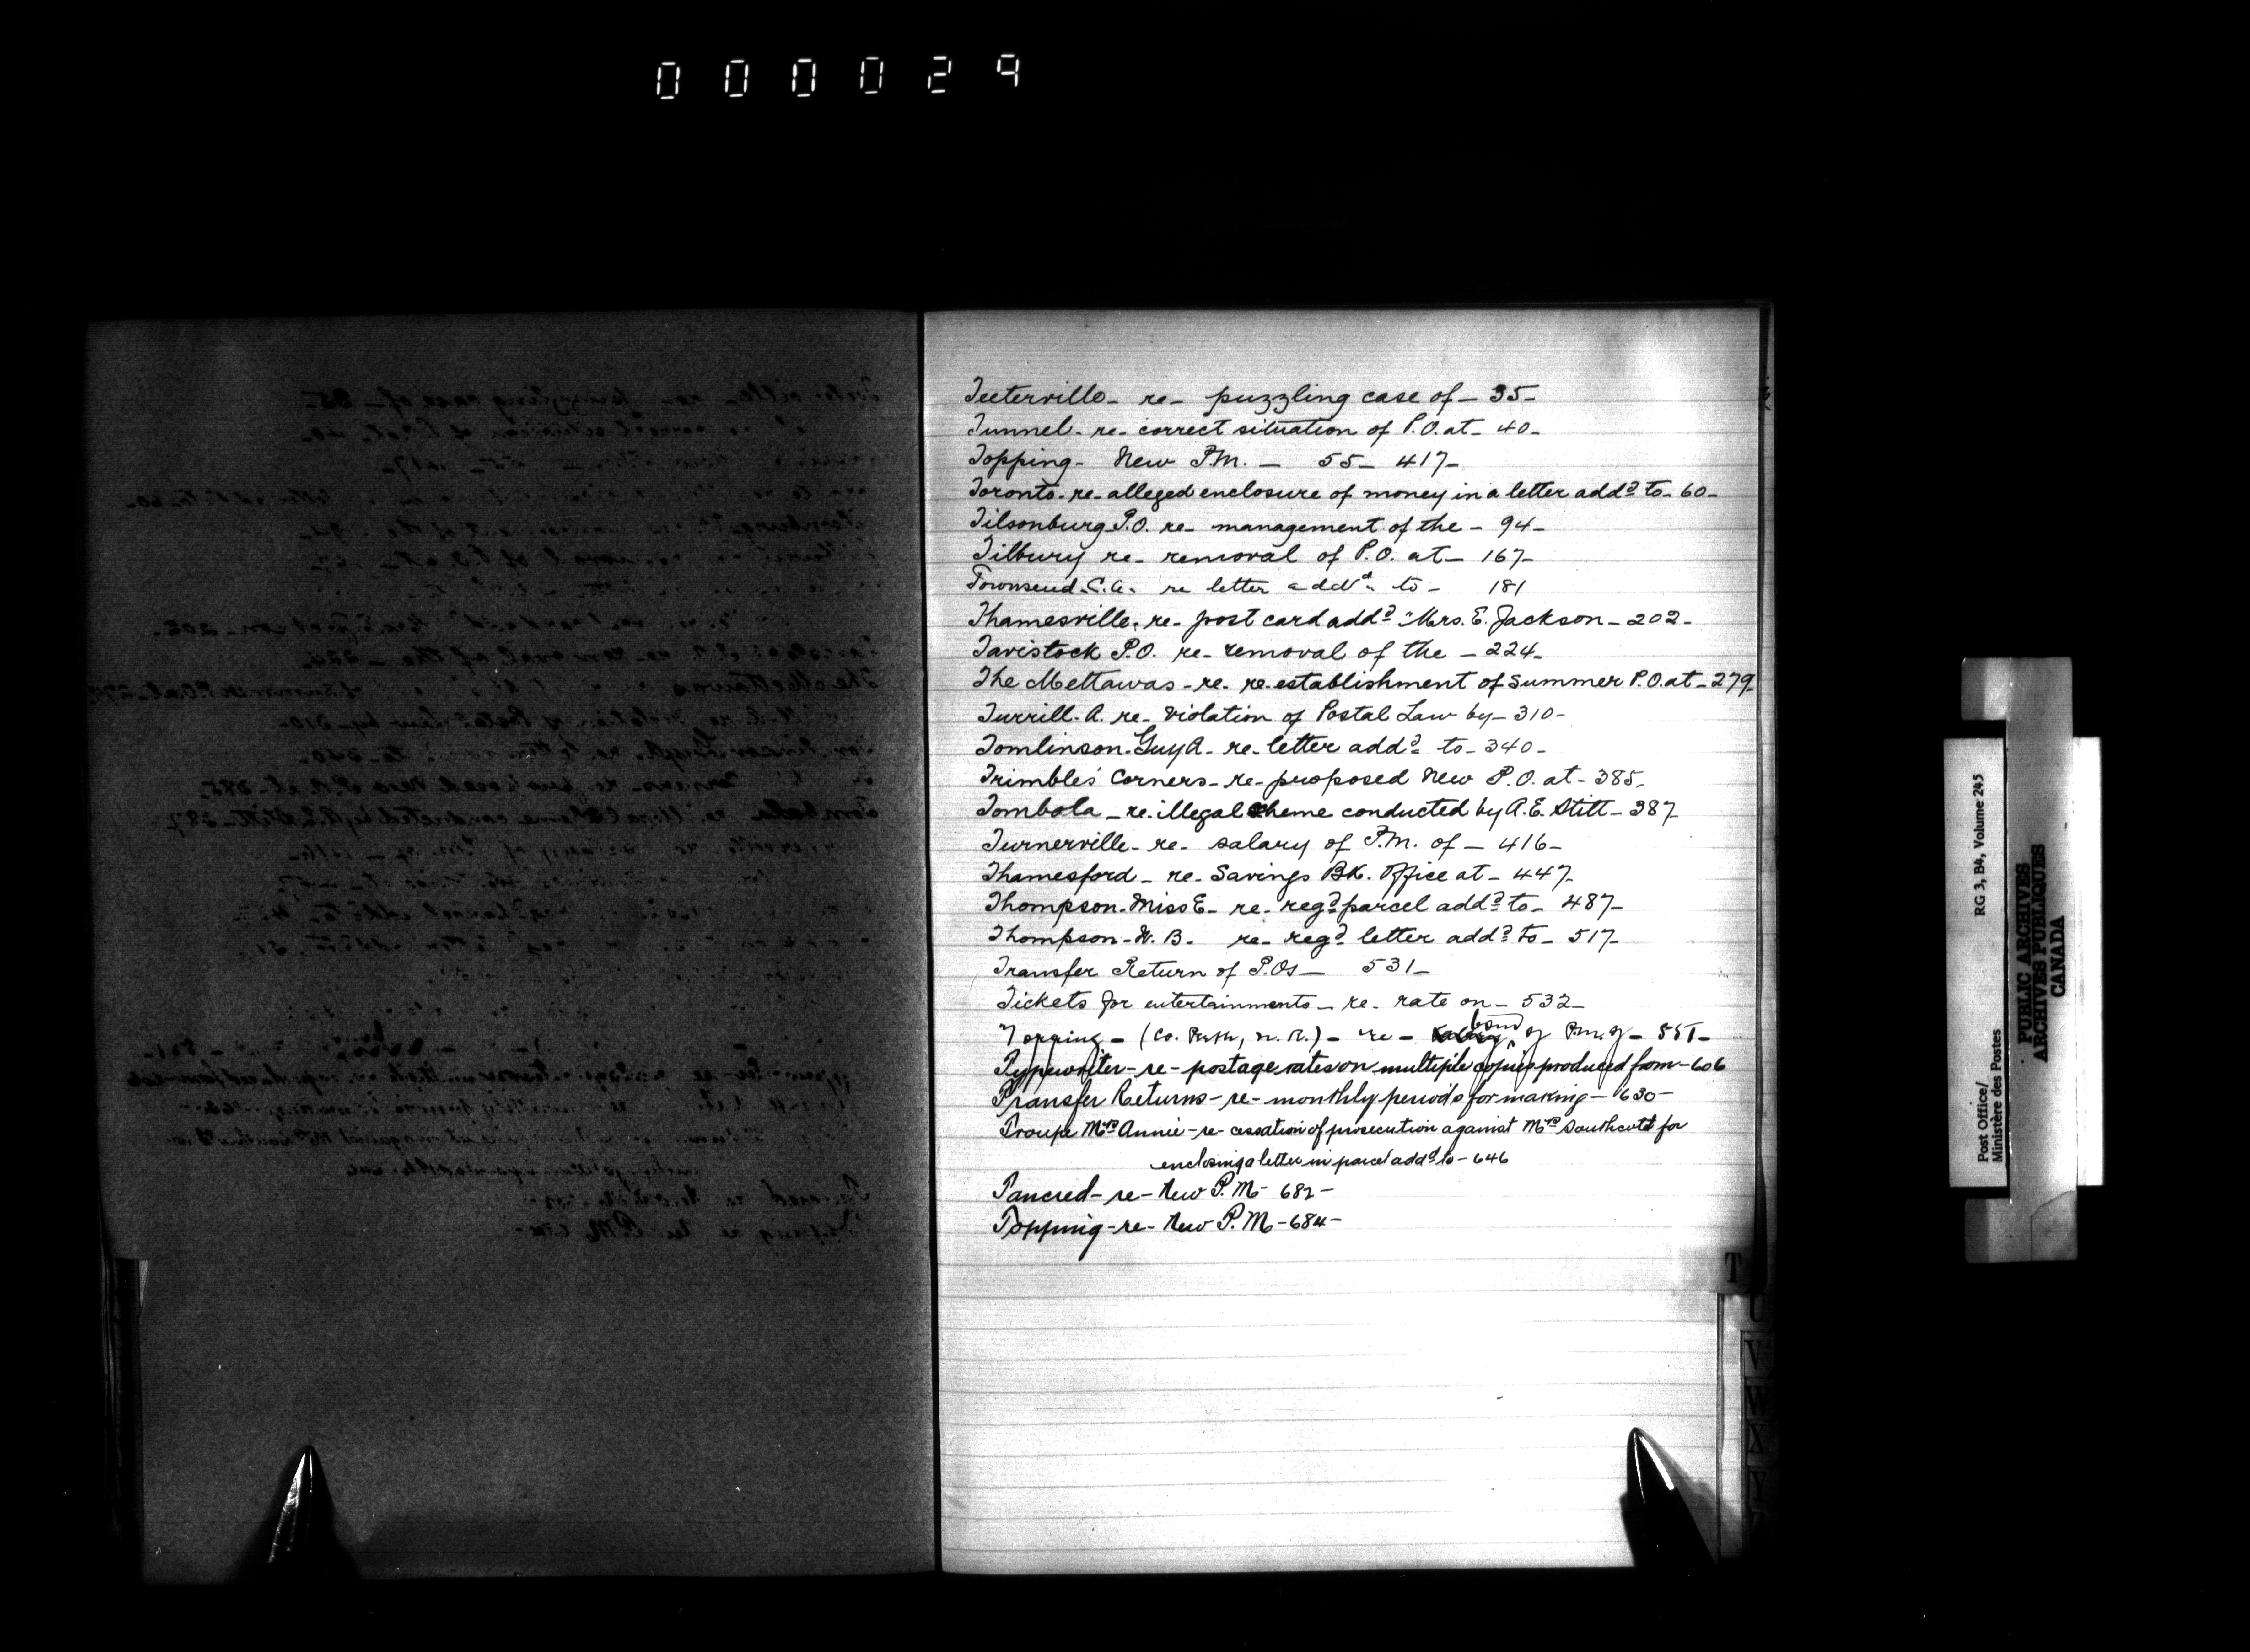 000029
Teeterville - re - puzzling case of - 35 -
Tunnel - re - correct situation of P.O. at - 40 -
Topping - New P.M. - 55 - 417 -
Toronto - re - alleged enclosure of money in a letter addd to - 60 -
Tilsonburg P.O. re - management of the - 94 -
Tilbury re - removal of P.O. at - 167 -
Townsend - C.A. - re letter addd to - 181
Thamesville - re - post card addd "Mrs. E. Jackson - 202 -
Tavistock P.O. re - removal of the - 224 -
The Mettawas - re - re-establishment of Summer P.O. at - 279 -
Turrill - A. re - Violation of Postal Law by - 310 -
Tomlinson - Guy A - re - letter addd to - 340 -
Trimble's Corners - re - proposed New P.O. at - 385 -
Tombola - re - illegal scheme conducted by A.E. Stitt - 387 -
Turnerville - re - salary of P.M. of - 416 -
Thamesford - re - Savings Bk. Office at - 447 -
Thompson - Miss E - re - regd parcel addd to - 487 -
Thompson - W. B. re - regd letter addd to - 517 -
Transfer Return of P.Os - 531 -
Tickets for entertainments - re - rate on - 532 -
Topping - (Co. Perth, N.R.) - re - bond of P.M. of - 551 -
Typewriter - re - postage rates on multiple copies produced from - 606
Transfer Returns - re - monthly periods for making - 630 -
Troupe Mrs Annie - re - cessation of prosecution against Mrs Southcott for
enclosing a letter in parcel addd to - 646
Tancred - re - New P.M - 682 -
Topping - re - New P.M - 684 -
T
U
V
W
X
Y
Post Office/
Ministère des Postes
RG 3, B4, Volume 245
PUBLIC ARCHIVES
ARCHIVES PUBLIQUES
CANADA